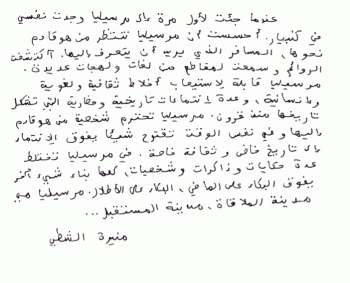 عندما جئت لأول مرة إلى مرسيليا وجدت نفسي
في كنبيار. أحسست أن مرسيليا تنتظر من هو قادم
نحوها، المسافر الذي يريد أن يتعرف إليها. اكتشفت
الروائح وسمعت لمقاطع من لغات ولهجات عديدة.
مرسيليا قابلة لإستيعاب أخلاط ثقافية ولغوية
وإنسانية، وعدة إنتماءات تاريخية وحضارية التي تشكل
تاريخها منذ قرون. مرسيليا تحترم شخصية من هو قادم
إليها وفي نفس الوقت تقترح شيئا يفوق الإنتماء
إلى تاريخ خاص وثقافة خاصة. في مرسيليا تختلط
عدة حكايات وذاكرات وشخصيات، كلها بناء شيء آخر
يفوق البكاء على الماضي، البكاء على الأطلال. مرسيليا هي
مدينة الملاقاة، مدينة المستقبل...
منيرة الشطي